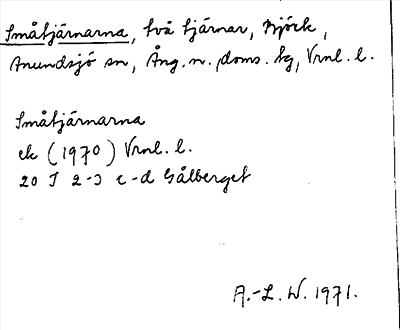 Småtjärnarna, två tjärnar, Björk,
Anundsjö sn, Ång. n. doms. bg, Vrnl. l.
Småtjärnarna
ek (1970) Vrnl. l.
20 J 2-3 c-d Gålberget
A.-L. W. 1971.